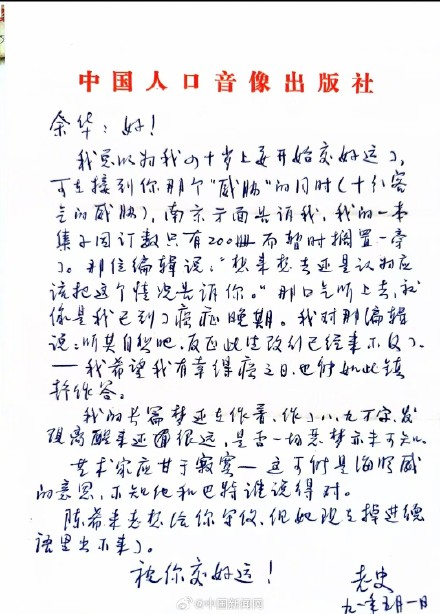 中国人口音像出版社
余华：好！
我总以为我四十岁上要开始交好运了，
可在接到你那个"威胁"的同时（十分客
气的威胁），南京方面告诉我，我的一本
集子因订数只有200册而暂时搁置一旁
了。那位编辑说："想来想去还是认为应
该把这个情况告诉你。"那口气听上去，就
像是我已到了癌症晚期。我对那编辑
说：听其自然吧，反正此生改行已经来不及了。
——我希望我有幸得癌之日，也能如此镇
静作答。
我的长篇梦还在作着，作了八、九万字，发
现离醒来还远得很，是否一切恶梦亦未可知。
艺术家应甘于寂寞——这可能是海明威
的意思，不知他和巴特谁说得对。
陈希米老想给你写信，但她现在掉进德
语里出不来了。
祝你交好运！
老史
九一年五月一日
@中国新闻网